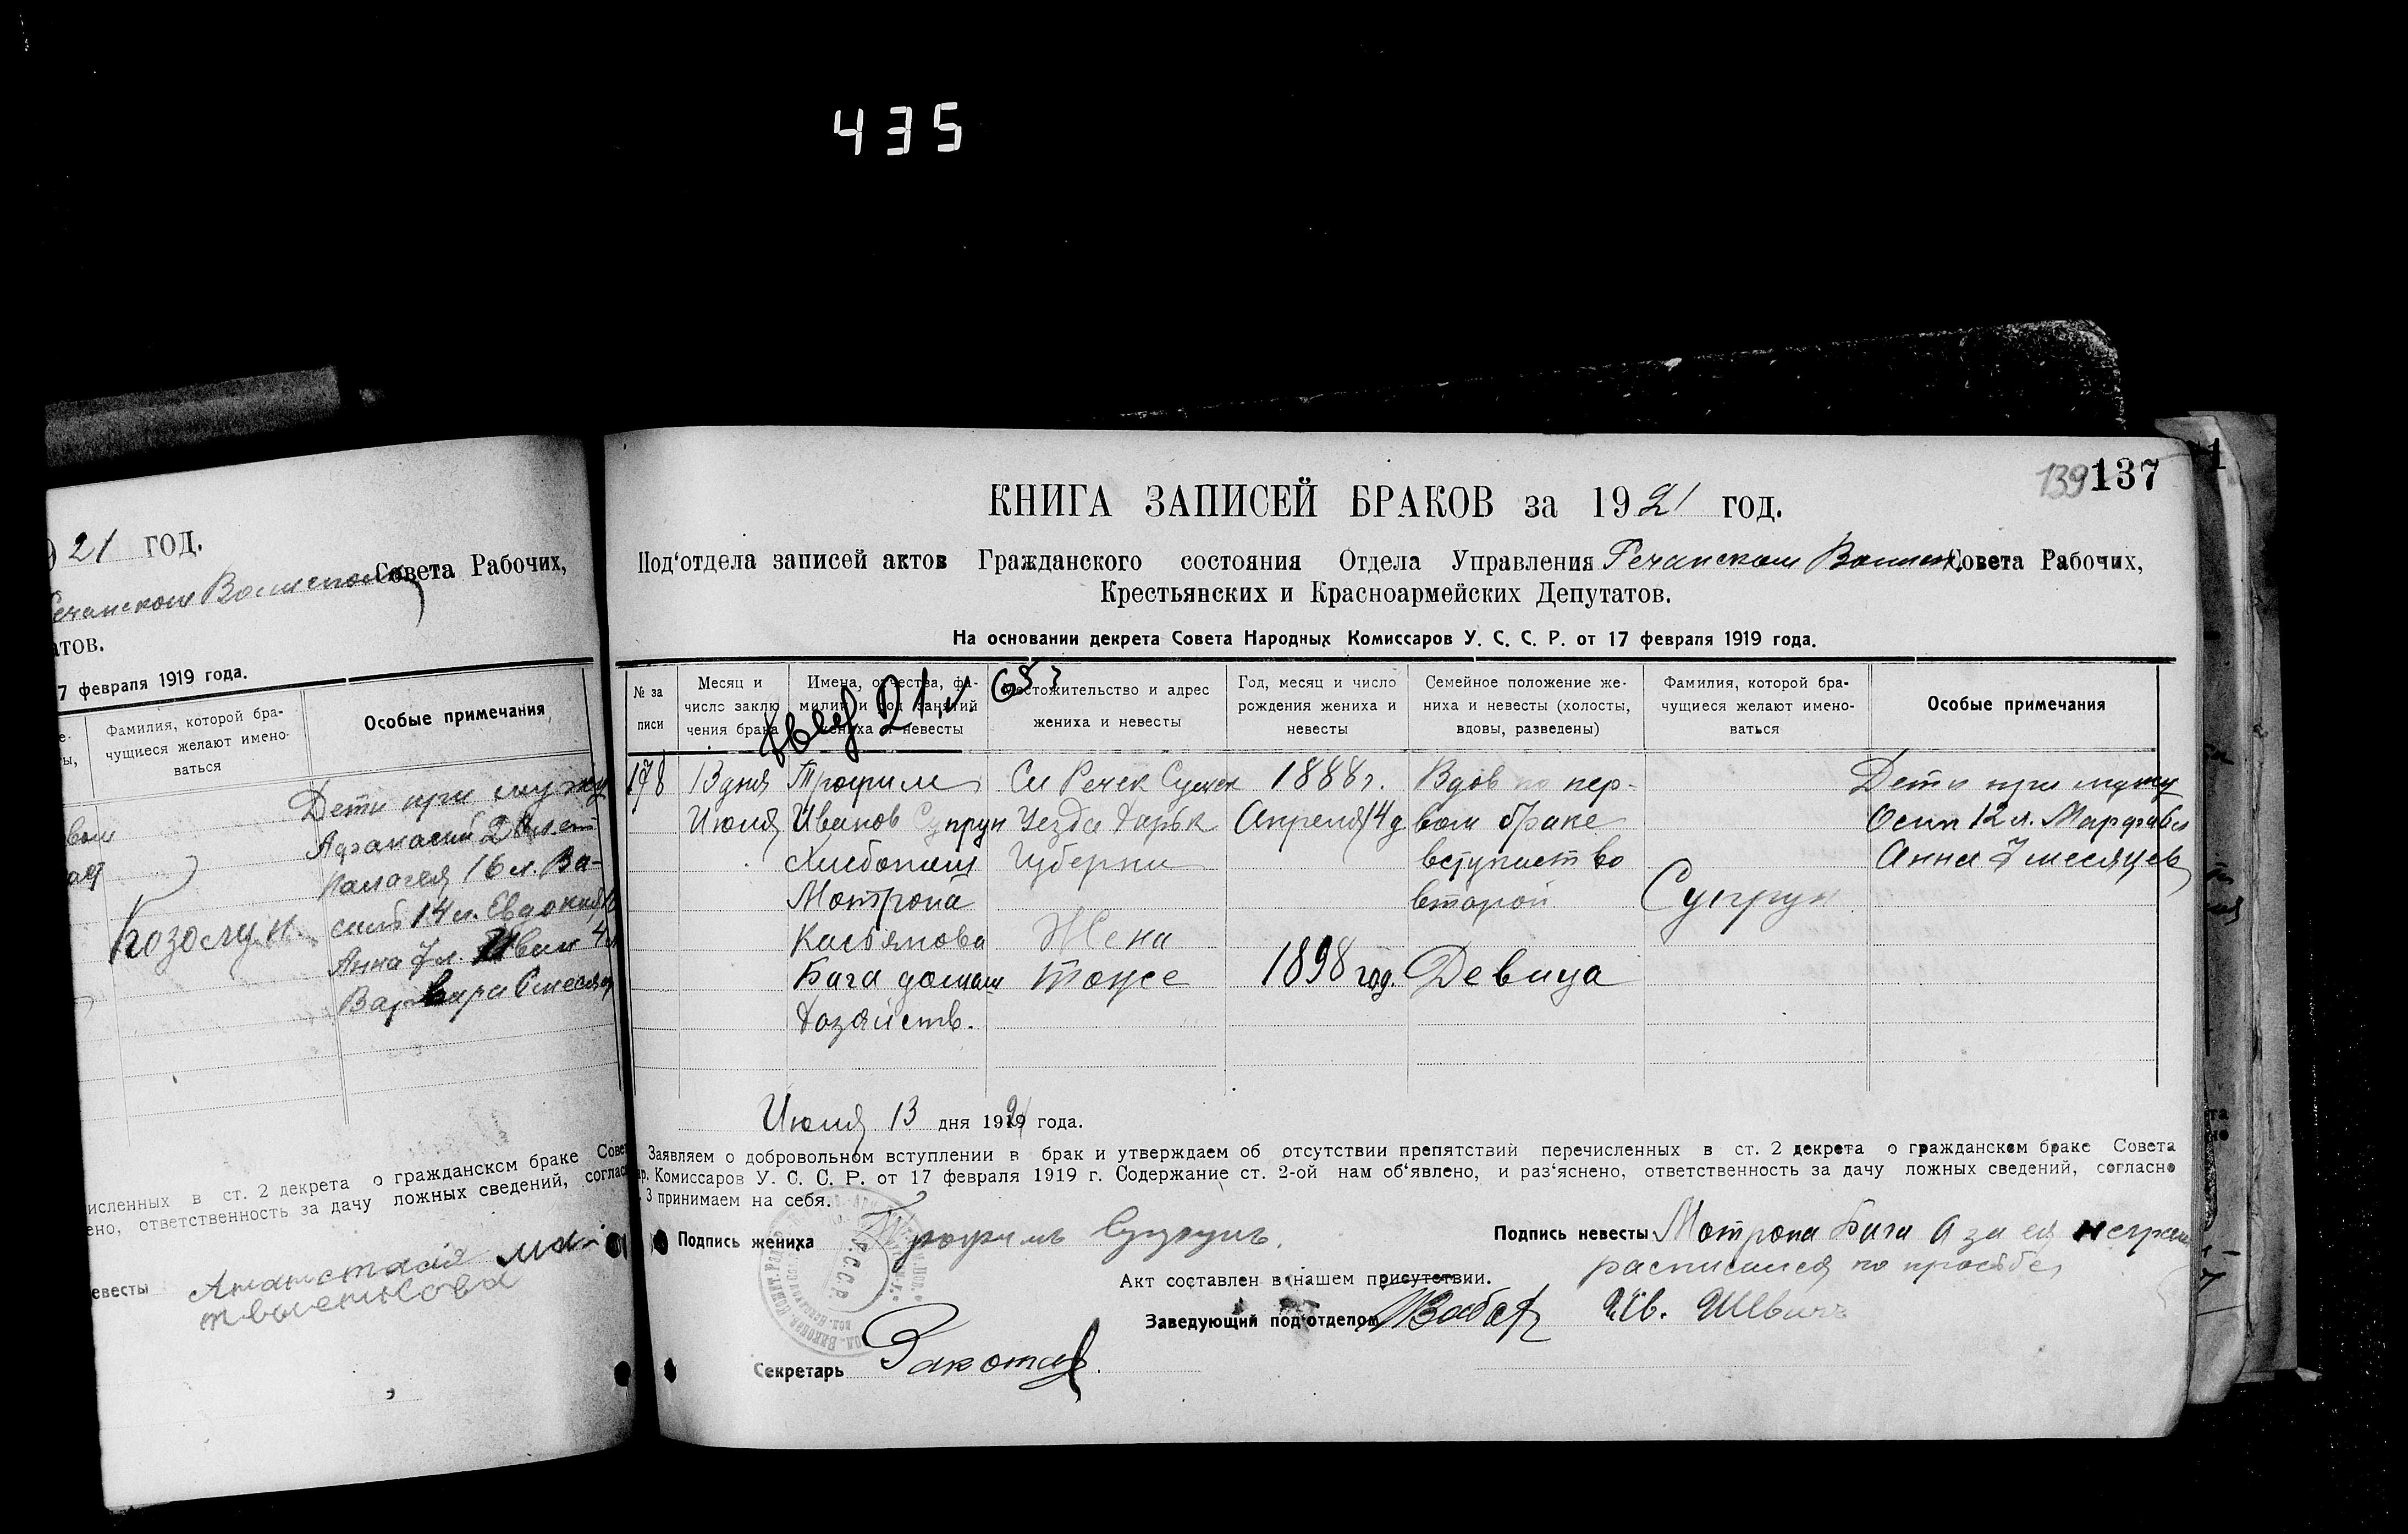 435
21 ГОД.
Совета Рабочих,
атов.
7 февраля 1919 года.
Фамилия, которой бра-
чущиеся желают имено-
ваться
Особые примечания
Дети при мужу
Афанасий 20 лет
Палагея 16 л. Ва-
силь 14 л. Евдокия
Анна 7 л. Иван 4 л
Варвара 6 месяц
численных в ст. 2 декрета о гражданском браке Сове
ено, ответственность за дачу ложных сведений, соглас
евесты
139 137
КНИГА ЗАПИСЕЙ БРАКОВ за 1921 год.
Под'отдела записей актов Гражданского состояния Отдела Управления Речанском Совета Рабочих,
Крестьянских и Красноармейских Депутатов.
На основании декрета Совета Народных Комиссаров У. С. С. Р. от 17 февраля 1919 года.
№ за
писи
Месяц и
число заклю
чения брака
Имена, отчества, фа-
милии и род занятий
жениха и невесты
Местожительство и адрес
жениха и невесты
Год, месяц и число
рождения жениха и
невесты
Семейное положение же-
ниха и невесты (холосты,
вдовы, разведены)
Фамилия, которой бра-
чущиеся желают имено-
ваться
Особые примечания
178
13 дня
Июля
Трофим
Иванов Супрун
Хлебопаш
Мотрона
Касьянова
Бага домаш
Хозяйств.
Сл Речек Сумск
Уезда Харьк
Губерни
Жена
тоже
1888 г.
Апреля 14 д
1898 год.
Вдов по пер-
вом браке
вступает во
второй
Девица
Супрун
Дети при мужу
Осип 12 л. Марфа 6 л
Анна 7 месяцев
Июля 13 дня 1921 года.
Заявляем о добровольном вступлении в брак и утверждаем об отсутствии препятствий перечисленных в ст. 2 декрета о гражданском браке Совета
ар. Комиссаров У. С. С. Р. от 17 февраля 1919 г. Содержание ст. 2-ой нам об'явлено, и раз'яснено, ответственность за дачу ложных сведений, согласно
. 3 принимаем на себя.
Подпись жениха Трофим Супрунъ.
Подпись невесты Мотрона Бага а за ея неграм
расписался по просьбе
Ив.
Акт составлен в нашем присутствии.
Заведующий под'отделом
Секретарь